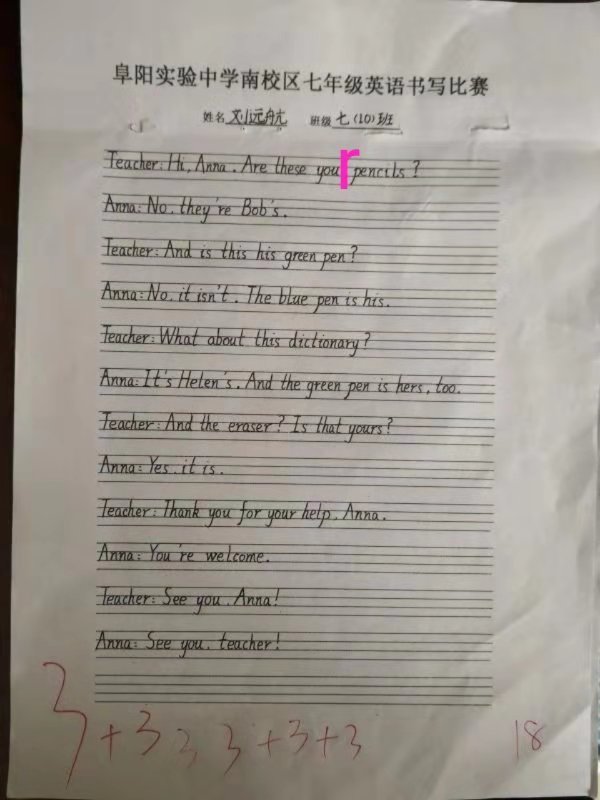 阜阳实验中学南校区七年级英语书写比赛
姓名 刘远航 班级 七(10)班
Teacher: Hi, Anna. Are these your pencils?
Anna: No, they're Bob's.
Teacher: And is this his green pen?
Anna: No, it isn't. The blue pen is his.
Teacher: What about this dictionary?
Anna: It's Helen's. And the green pen is hers, too.
Teacher: And the eraser? Is that yours?
Anna: Yes, it is.
Teacher: Thank you for your help, Anna.
Anna: You're welcome.
Teacher: See you, Anna!
Anna: See you, teacher!
3+3 3 3+3+3 18